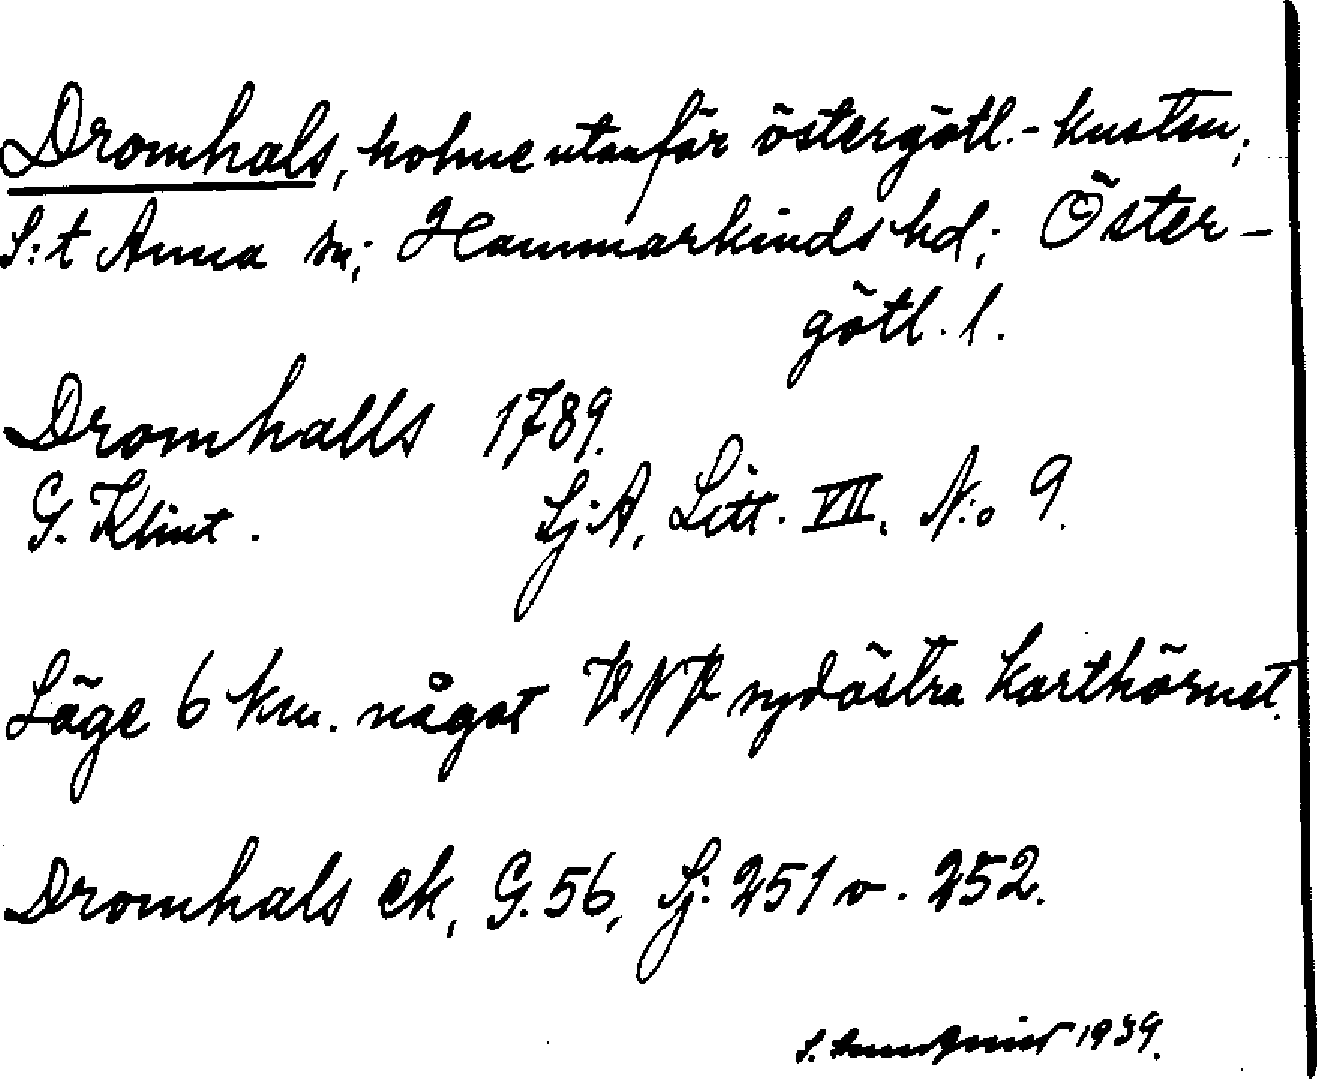 Dromhals, holme utanför östergötl.-kusten;
S:t Anna sn; Hammarkinds hd; Öster-
götl. l.
Dromhalls 1789.
G. Klint. Sj.A, Litt. VII. N:o 9.
Läge 6 km. något VNV sydöstra karthörnet.
Dromhals ek, G. 56, Sj: 251 o. 252.
S. 1939.